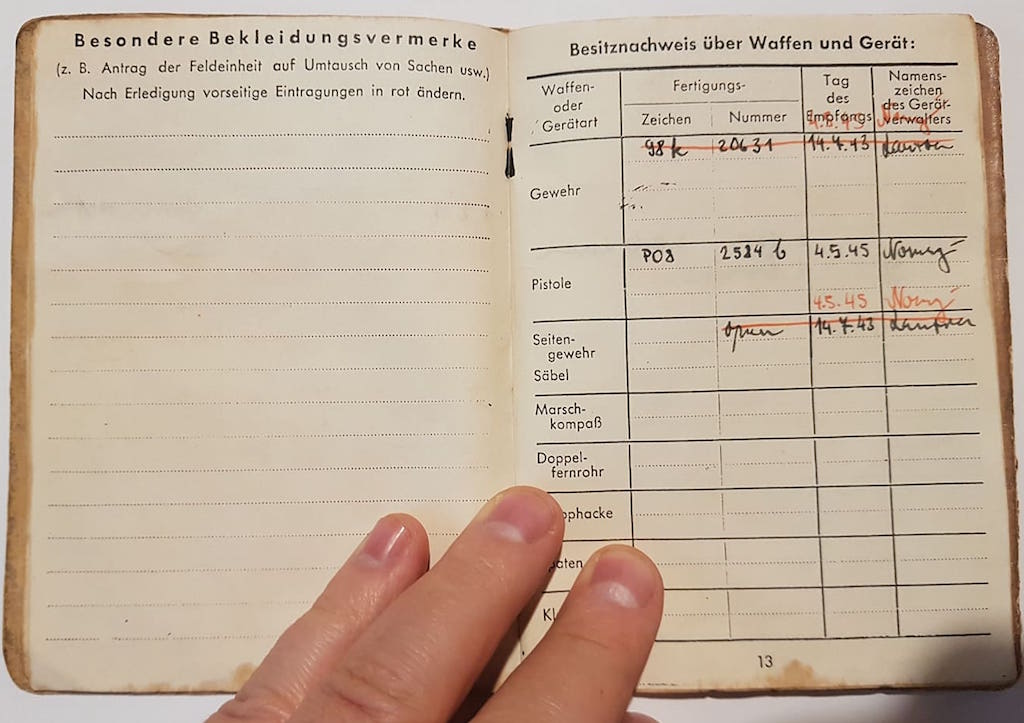 Besondere Bekleidungsvermerke
(z. B. Antrag der Feldeinheit auf Umtausch von Sachen usw.)
Nach Erledigung vorseitige Eintragungen in rot ändern.
Besitznachweis über Waffen und Gerät:
Waffen- oder Gerätart
Fertigungs-
Zeichen Nummer
Tag des Empfangs
Namens-zeichen des Gerät-verwalters
Gewehr 98k 20631 14.7.43
Pistole P08 2584 b 4.5.45
4.5.45
Seiten-gewehr 14.7.43
Säbel
Marsch-kompaß
Doppel-fernrohr
13